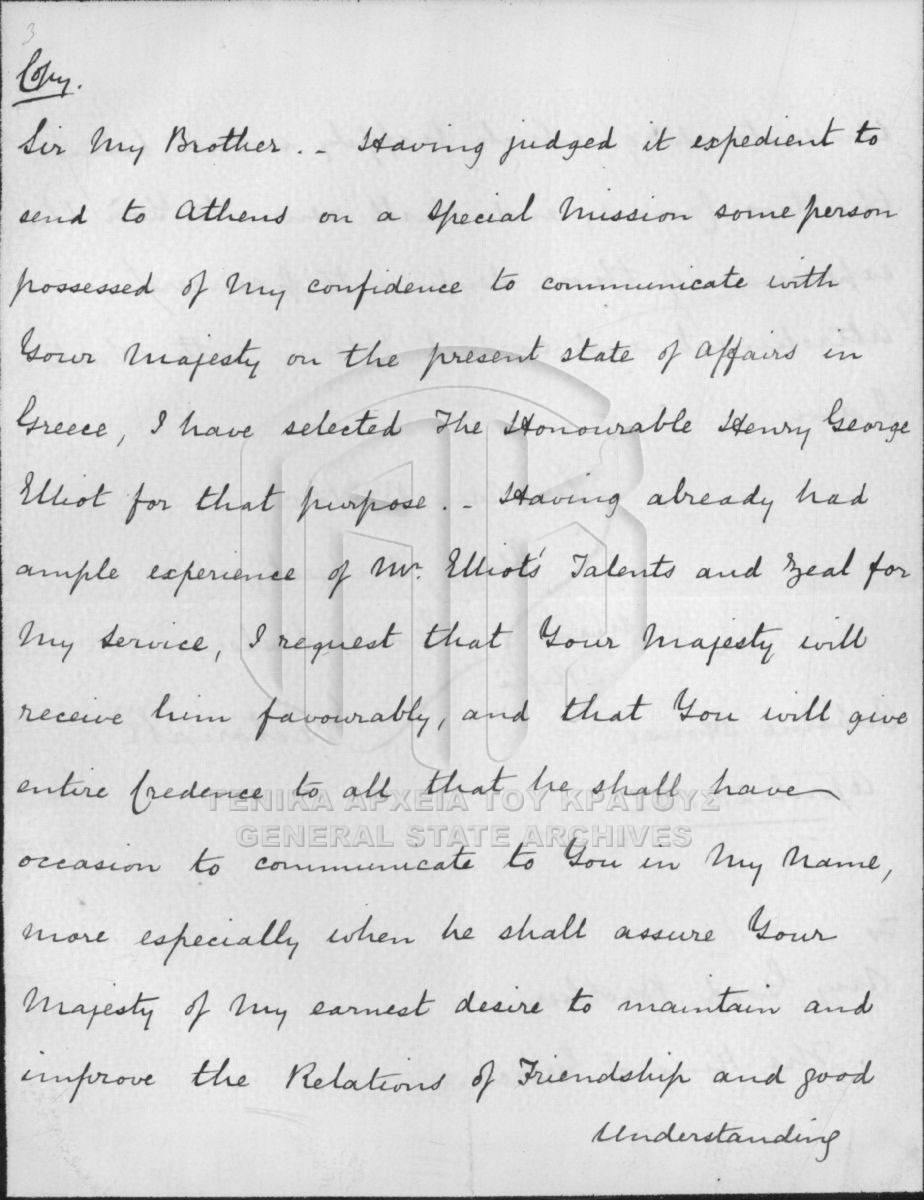 3
Copy.
Sir My Brother. - Having judged it expedient to
send to Athens on a Special Mission some person
possessed of My confidence to communicate with
Your Majesty on the present state of Affairs in
Greece, I have selected The Honourable Henry George
Elliot for that purpose. - Having already had
ample experience of Mr. Elliot's Talents and Zeal for
My Service, I request that Your Majesty will
receive him favourably, and that You will give
entire Credence to all that he shall have
ΓΕΝΙΚΑ ΑΡΧΕΙΑ ΤΟΥ ΚΡΑΤΟΥΣ
GENERAL STATE ARCHIVES
occasion to communicate to You in My Name,
more especially when he shall assure Your
Majesty of My earnest desire to maintain and
improve the Relations of Friendship and good
Understanding